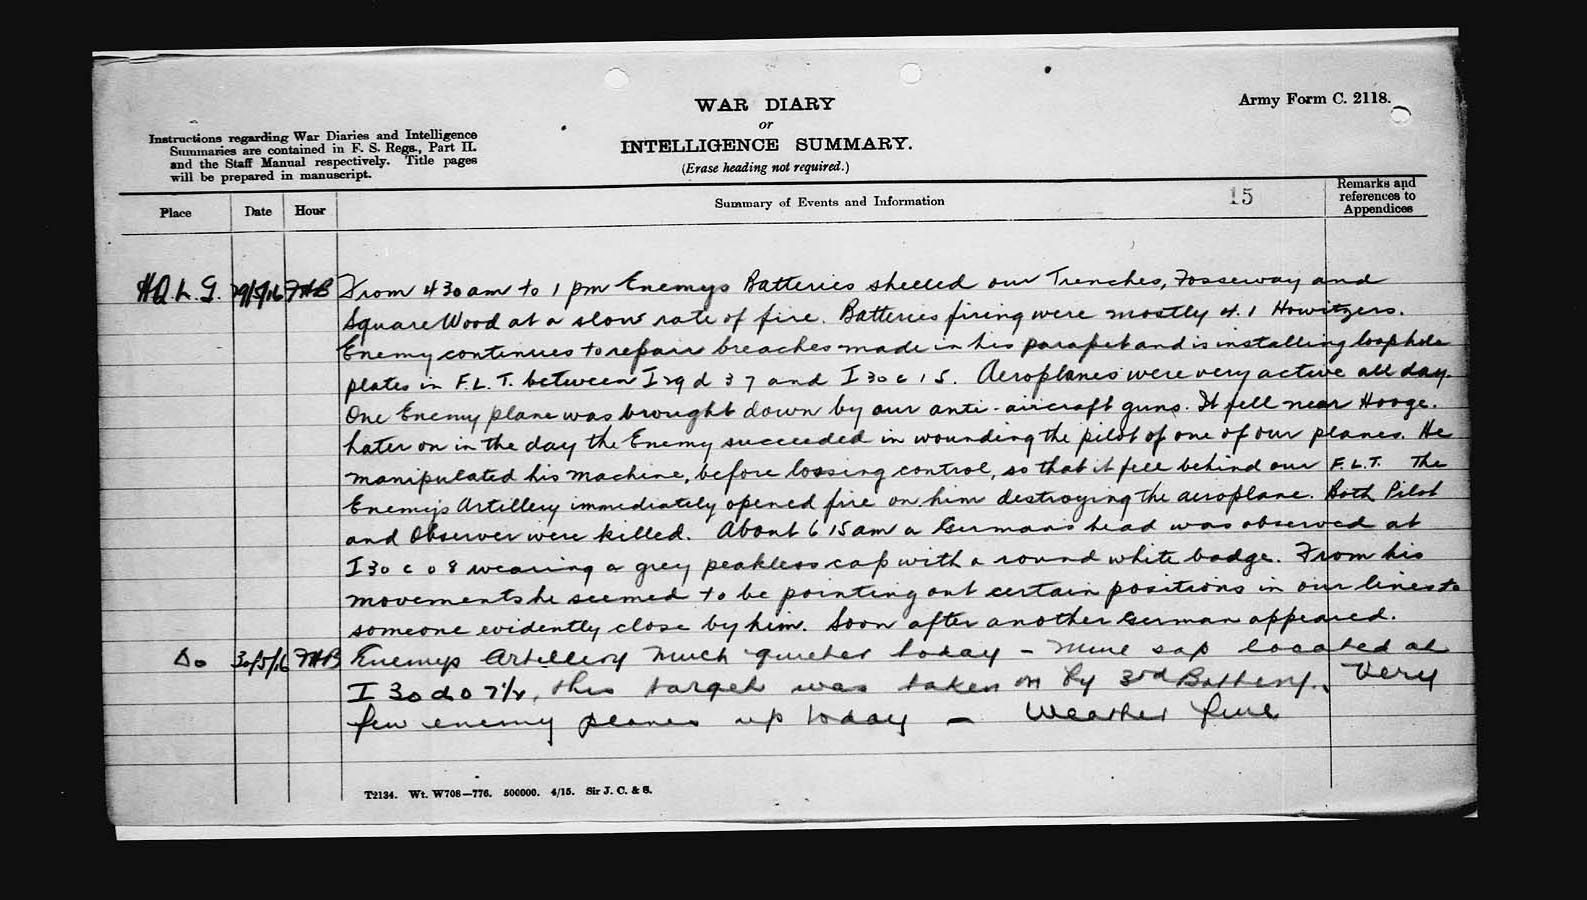 WAR DIARY
or
INTELLIGENCE SUMMARY.
(Erase heading not required.)
Army Form C. 2118.
Instructions regarding War Diaries and Intelligence
Summaries are contained in F. S. Regs., Part II.
and the Staff Manual respectively. Title pages
will be prepared in manuscript.
Place Date Hour Summary of Events and Information 15 Remarks and references to Appendices
H.Q. L. G. 29/5/16 FHB From 4 30 am to 1 pm Enemys Batteries shelled our Trenches, Fosseway and
Square Wood at a slow rate of fire. Batteries firing were mostly 4.1 Howitzers.
Enemy continues to repair breaches made in his parapet and is installing loophole
plates in F.L.T. between I 29 d 3 7 and I 30 c 1 5. Aeroplanes were very active all day.
One Enemy plane was brought down by our anti-aircraft guns. It fell near Hooge.
Later on in the day the Enemy succeeded in wounding the pilot of one of our planes. He
manipulated his machine, before lossing control, so that it fell behind our F.L.T. The
Enemys Artillery immediately opened fire on him destroying the aeroplane. Both Pilot
and Observer were killed. About 6 15 am a German's head was observed at
I 30 c 0 8 wearing a grey peakless cap with a round white badge. From his
movements he seemed to be pointing out certain positions in our lines to
someone evidently close by him. Soon after another German appeared.
Do 30/5/16 FHB Enemys Artillery much quieter today - Mine sap located at
I 30 d 0 7½, this target was taken on by 3rd Battery. Very
few enemy planes up today - Weather fine
T2134. Wt. W708—776. 500000. 4/15. Sir J. C. & S.